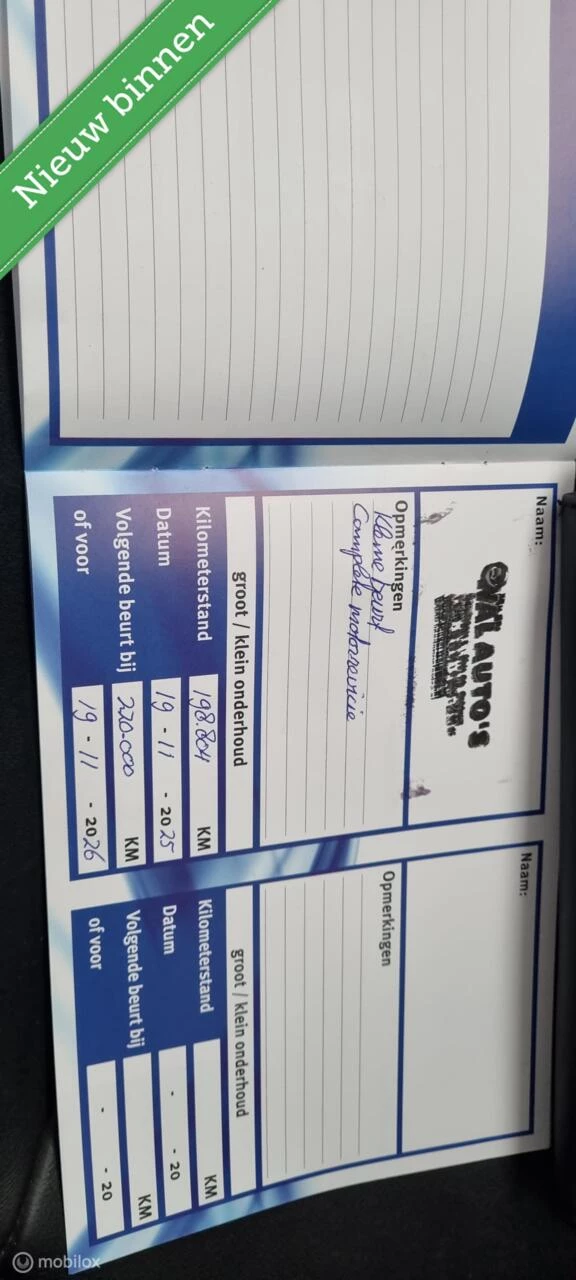 Nieuw binnen
Naam:
OVAL AUTO'S
Opmerkingen
kleine beurt
Complete motorrevisie
groot / klein onderhoud
Kilometerstand 198.804 KM
Datum 19 - 11 - 2025
Volgende beurt bij 220.000 KM
of voor 19 - 11 - 2026
Naam:
Opmerkingen
groot / klein onderhoud
Kilometerstand KM
Datum - - 20
Volgende beurt bij KM
of voor - - 20
mobilox